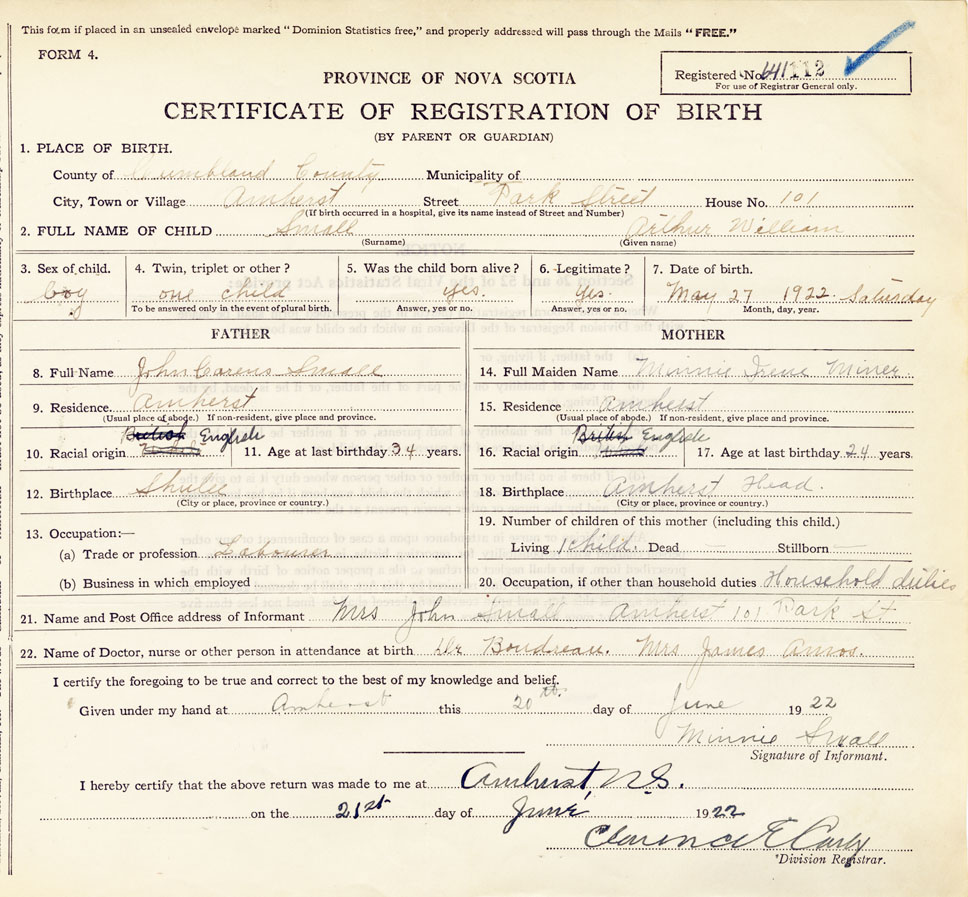 This form if placed in an unsealed envelope marked "Dominion Statistics free," and properly addressed will pass through the Mails "FREE."
FORM 4.
Registered No. 112
For use of Registrar General only.
PROVINCE OF NOVA SCOTIA
CERTIFICATE OF REGISTRATION OF BIRTH
(BY PARENT OR GUARDIAN)
1. PLACE OF BIRTH.
County of Cumbland County Municipality of
City, Town or Village Amherst Street Park Street House No. 101
(If birth occurred in a hospital, give its name instead of Street and Number)
2. FULL NAME OF CHILD Small Arthur William
(Surname) (Given name)
3. Sex of child. 4. Twin, triplet or other? 5. Was the child born alive? 6. Legitimate? 7. Date of birth.
boy one child yes. Yes. May 27 1922 Saturday
To be answered only in the event of plural birth. Answer, yes or no. Answer, yes or no. Month, day, year.
FATHER MOTHER
8. Full Name John Small 14. Full Maiden Name Minnie Irene Miner
9. Residence. Amherst 15. Residence Amherst
(Usual place of abode.) If non-resident, give place and province. (Usual place of abode.) If non-resident, give place and province.
British English British English
10. Racial origin 11. Age at last birthday 34 years. 16. Racial origin 17. Age at last birthday 24 years.
12. Birthplace Shulee 18. Birthplace Amherst Head.
(City or place, province or country.) (City or place, province or country.)
13. Occupation:— 19. Number of children of this mother (including this child.)
(a) Trade or profession Labourer Living 1 child. Dead Stillborn
(b) Business in which employed 20. Occupation, if other than household duties Household duties
21. Name and Post Office address of Informant Mrs John Small Amherst 101 Park St.
22. Name of Doctor, nurse or other person in attendance at birth Dr Boudreau. Mrs James Amos.
I certify the foregoing to be true and correct to the best of my knowledge and belief.
Given under my hand at Amherst this 20th. day of June 1922
Minnie Small
Signature of Informant.
I hereby certify that the above return was made to me at Amherst, N.S.
on the 21st day of June 1922
Clarence E
Division Registrar.